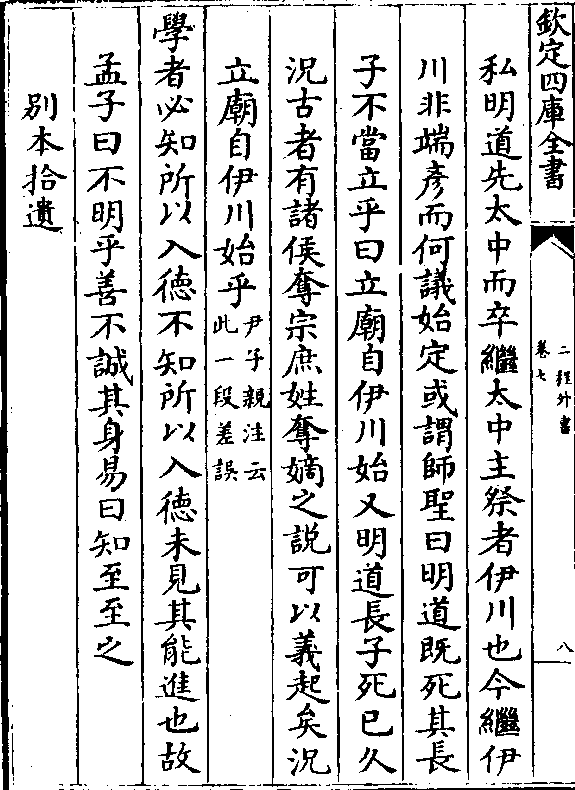 欽定四庫全書
二程外書
卷七
八
私明道先太中而卒繼太中主祭者伊川也今繼伊
川非端彥而何議始定或謂師聖曰明道既死其長
子不當立乎曰立廟自伊川始又明道長子死已久
況古者有諸侯奪宗庶姓奪嫡之說可以義起矣況
立廟自伊川始乎尹子親注云
此一段差誤
學者必知所以入德不知所以入德未見其能進也故
孟子曰不明乎善不誠其身易曰知至至之
別本拾遺